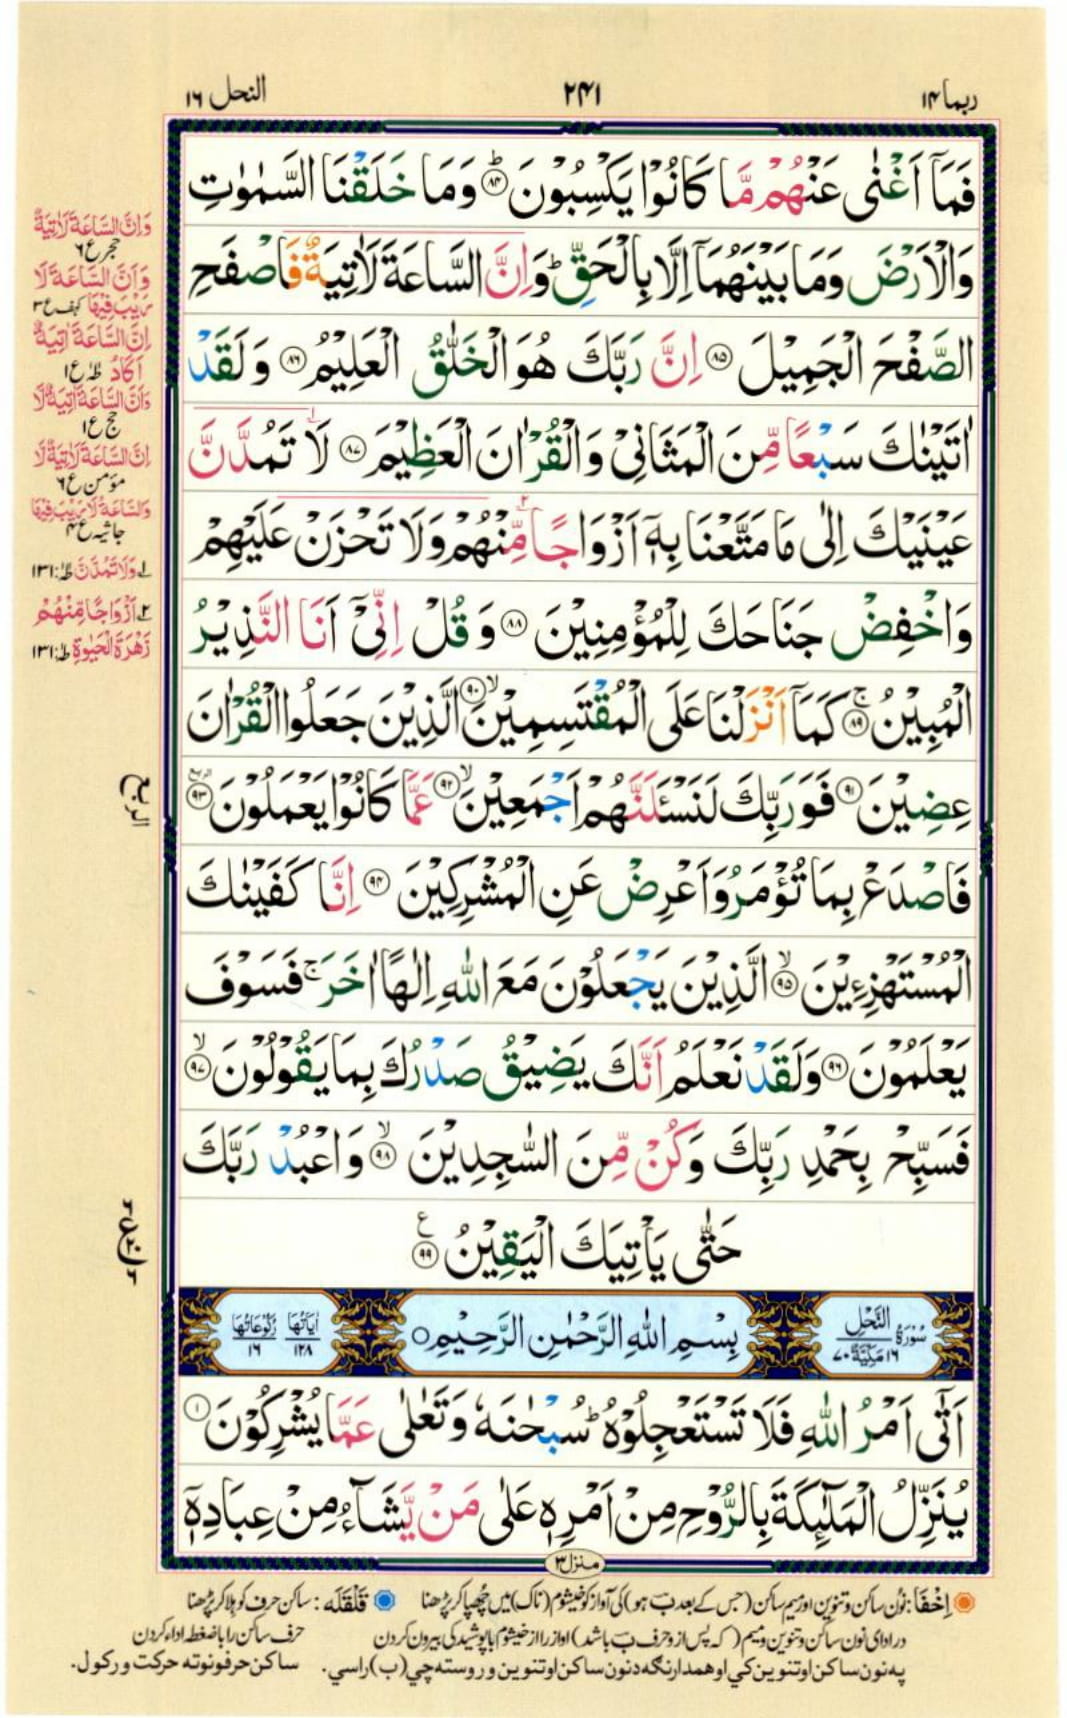 ربما ١٤
٢٤١
النحل ١٦
فَمَآ اَغْنٰى عَنْهُمْ مَّا كَانُوْا يَكْسِبُوْنَ ؕ ﴿۸۴﴾ وَمَا خَلَقْنَا السَّمٰوٰتِ
وَالْاَرْضَ وَمَا بَيْنَهُمَآ اِلَّا بِالْحَقِّ ؕ وَاِنَّ السَّاعَةَ لَاٰتِيَةٌ فَاصْفَحِ
الصَّفْحَ الْجَمِيْلَ ﴿۸۵﴾ اِنَّ رَبَّكَ هُوَ الْخَلّٰقُ الْعَلِيْمُ ﴿۸۶﴾ وَلَقَدْ
اٰتَيْنٰكَ سَبْعًا مِّنَ الْمَثَانِيْ وَالْقُرْاٰنَ الْعَظِيْمَ ﴿۸۷﴾ لَا تَمُدَّنَّ
عَيْنَيْكَ اِلٰى مَا مَتَّعْنَا بِهٖٓ اَزْوَاجًا مِّنْهُمْ وَلَا تَحْزَنْ عَلَيْهِمْ
وَاخْفِضْ جَنَاحَكَ لِلْمُؤْمِنِيْنَ ﴿۸۸﴾ وَقُلْ اِنِّيْٓ اَنَا النَّذِيْرُ
الْمُبِيْنُ ۚ ﴿۸۹﴾ كَمَآ اَنْزَلْنَا عَلَى الْمُقْتَسِمِيْنَ ۙ ﴿۹۰﴾ الَّذِيْنَ جَعَلُوا الْقُرْاٰنَ
عِضِيْنَ ﴿۹۱﴾ فَوَرَبِّكَ لَنَسْـَٔلَنَّهُمْ اَجْمَعِيْنَ ۙ ﴿۹۲﴾ عَمَّا كَانُوْا يَعْمَلُوْنَ ﴿۹۳﴾
فَاصْدَعْ بِمَا تُؤْمَرُ وَاَعْرِضْ عَنِ الْمُشْرِكِيْنَ ﴿۹۴﴾ اِنَّا كَفَيْنٰكَ
الْمُسْتَهْزِءِيْنَ ۙ ﴿۹۵﴾ الَّذِيْنَ يَجْعَلُوْنَ مَعَ اللّٰهِ اِلٰهًا اٰخَرَ ۚ فَسَوْفَ
يَعْلَمُوْنَ ﴿۹۶﴾ وَلَقَدْ نَعْلَمُ اَنَّكَ يَضِيْقُ صَدْرُكَ بِمَا يَقُوْلُوْنَ ۙ ﴿۹۷﴾
فَسَبِّحْ بِحَمْدِ رَبِّكَ وَكُنْ مِّنَ السّٰجِدِيْنَ ۙ ﴿۹۸﴾ وَاعْبُدْ رَبَّكَ
حَتّٰى يَاْتِيَكَ الْيَقِيْنُ ﴿۹۹﴾ ع
سُوْرَةُ النَّحْلِ ١٦ مَكِّيَّةٌ ٧٠
بِسْمِ اللّٰهِ الرَّحْمٰنِ الرَّحِيْمِ ○
اٰيَاتُهَا ١٢٨ رُكُوْعَاتُهَا ١٦
اَتٰٓى اَمْرُ اللّٰهِ فَلَا تَسْتَعْجِلُوْهُ ؕ سُبْحٰنَهٗ وَتَعٰلٰى عَمَّا يُشْرِكُوْنَ ﴿۱﴾
يُنَزِّلُ الْمَلٰٓئِكَةَ بِالرُّوْحِ مِنْ اَمْرِهٖ عَلٰى مَنْ يَّشَآءُ مِنْ عِبَادِهٖٓ
منزل ٣
وَاِنَّ السَّاعَةَ لَاٰتِيَةٌ
حجر ع ٦
وَاَنَّ السَّاعَةَ لَا
رَيْبَ فِيْهَا كهف ع ٣
اِنَّ السَّاعَةَ اٰتِيَةٌ
اَكَادُ طٰهٰ ع ١
وَاَنَّ السَّاعَةَ اٰتِيَةٌ لَّا
حج ع ١
اِنَّ السَّاعَةَ لَاٰتِيَةٌ لَّا
مؤمن ع ٦
وَالسَّاعَةُ لَا رَيْبَ فِيْهَا
جاثيه ع ٤
١ وَلَا تَمُدَّنَّ طٰهٰ: ١٣١
٢ اَزْوَاجًا مِّنْهُمْ
زَهْرَةَ الْحَيٰوةِ طٰهٰ: ١٣١
الربع
اِخْفَا: نُون ساکن و تنوین اور میم ساکن (جس کے بعد بَ ہو) کی آواز کو خیشوم (ناک) میں چُھپا کر پڑھنا
قَلْقَلَه: ساکن حرف کو ہلا کر پڑھنا
در ادای نون ساکن و تنوین و میم (که پس از و حرف بَ باشد) اواز را از خیشوم با پوشیدگی بیرون کردن
حرف ساکن را با ضغطه اداء کردن
په نون ساکن او تنوین کي او همدارنګه د نون ساکن او تنوین وروسته چي (ب) راسي.
ساکن حرفونو ته حرکت ورکول.